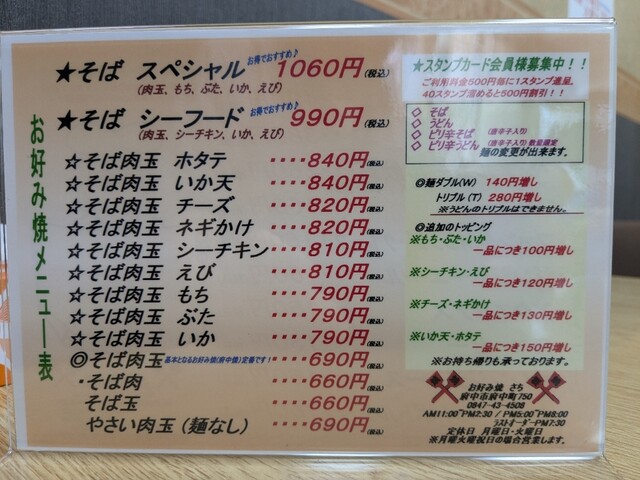 お好み焼メニュー表
お得でおすすめ♪
★そば スペシャル 1060円(税込)
(肉玉、もち、ぶた、いか、えび)
お得でおすすめ♪
★そば シーフード 990円(税込)
(肉玉、シーチキン、いか、えび)
☆そば肉玉 ホタテ ････840円(税込)
☆そば肉玉 いか天 ････840円(税込)
☆そば肉玉 チーズ ････820円(税込)
☆そば肉玉 ネギかけ ････820円(税込)
☆そば肉玉 シーチキン････810円(税込)
☆そば肉玉 えび ････810円(税込)
☆そば肉玉 もち ････790円(税込)
☆そば肉玉 ぶた ････790円(税込)
☆そば肉玉 いか ････790円(税込)
◎そば肉玉 基本となるお好み焼(府中焼)定番です! ････690円(税込)
・そば肉 ････660円(税込)
そば玉 ････660円(税込)
やさい肉玉(麺なし) ････690円(税込)
★スタンプカード会員様募集中!!
ご利用料金500円毎に1スタンプ進呈、
40スタンプ溜めると500円割引!!
◇ そば
◇ うどん
◇ ピリ辛そば (唐辛子入り)
◇ ピリ辛うどん (唐辛子入り)数量限定
麺の変更が出来ます。
◎麺ダブル(W) 140円増し
トリプル(T) 280円増し
※うどんのトリプルはできません。
◎追加のトッピング
※もち・ぶた・いか
一品につき100円増し
※シーチキン・えび
一品につき120円増し
※チーズ・ネギかけ
一品につき130円増し
※いか天・ホタテ
一品につき150円増し
※お持ち帰りも承っております。
お好み焼 さち
府中市府中町750
0847-43-4508
AM11:00~PM2:30 / PM5:00~PM8:00
ラストオーダーPM7:30
定休日 月曜日・火曜日
※月曜火曜祝日の場合営業します。